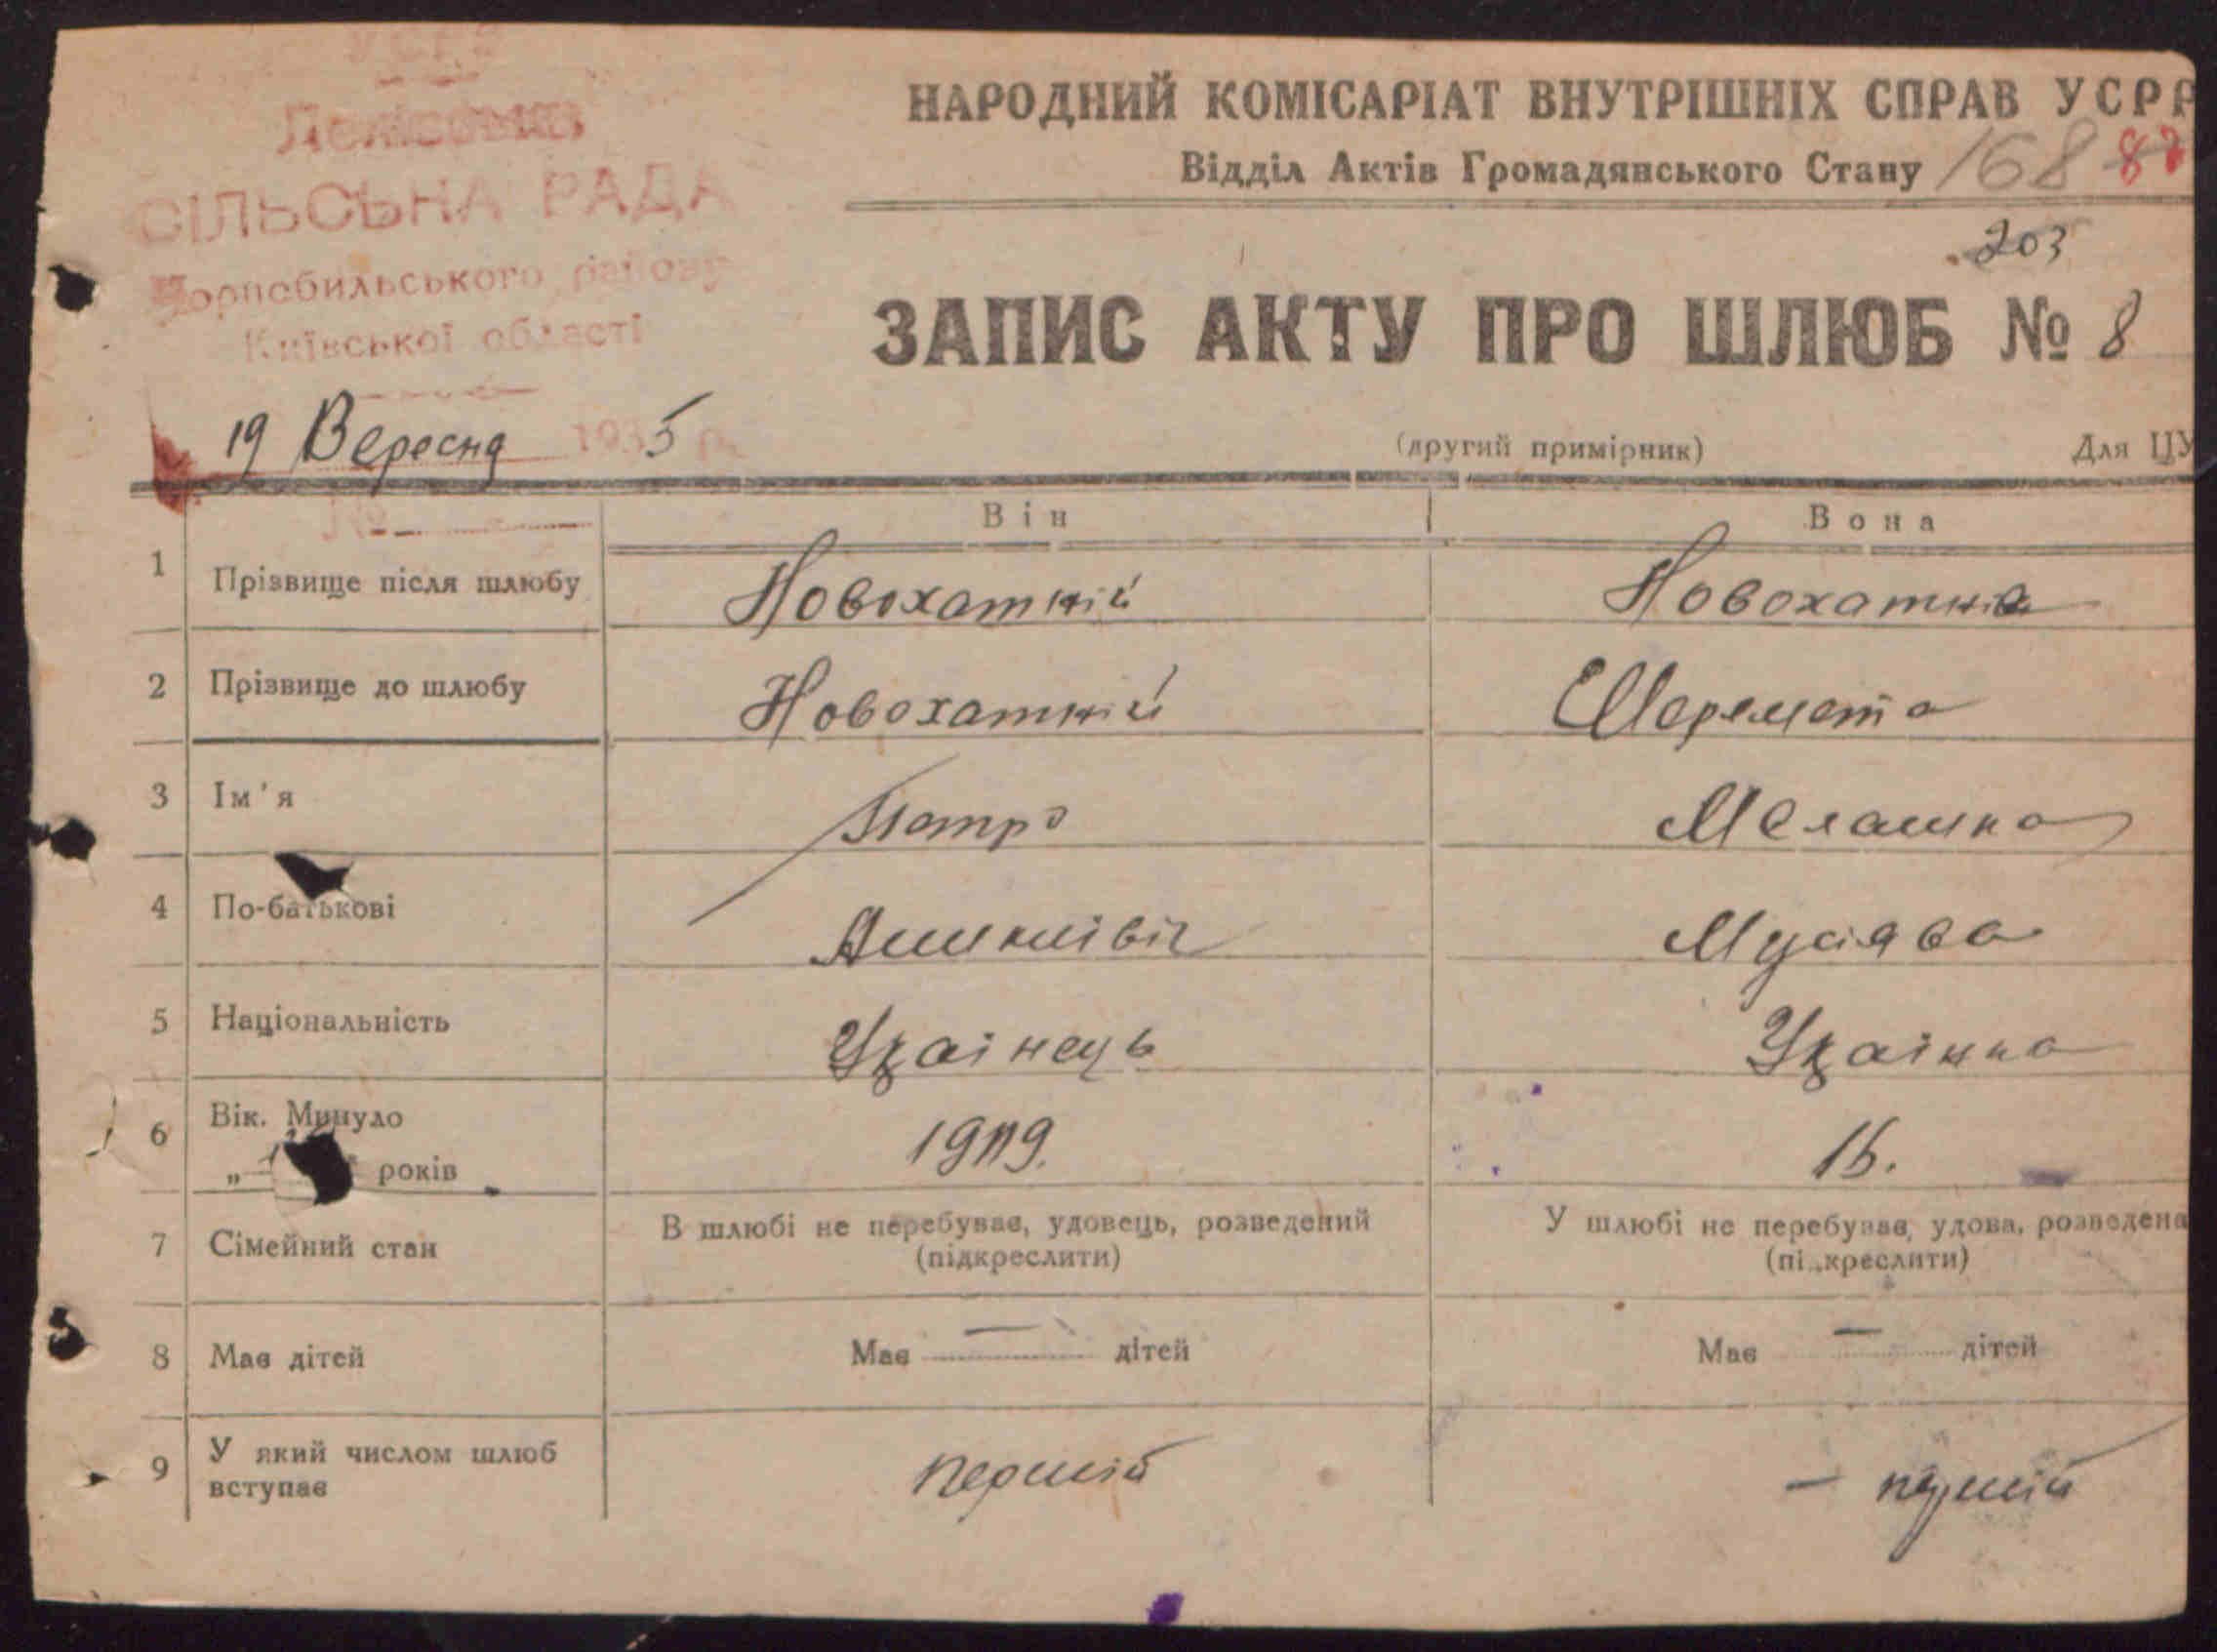 УСРР
СІЛЬСЬНА РАДА
Чорнобильського району
Київської області
19 Вересня 1935 р.
№
НАРОДНИЙ КОМІСАРІАТ ВНУТРІШНІХ СПРАВ УСРР
Відділ Актів Громадянського Стану 168 82
203
ЗАПИС АКТУ ПРО ШЛЮБ № 8
(другий примірник) Для ЦУ
Він Вона
1 Прізвище після шлюбу Новохатній Новохатня
2 Прізвище до шлюбу Новохатній Шеремета
3 Ім'я Петро Мелашка
4 По-батькові Мусієва
5 Національність Українець Українка
6 Вік. Минуло
" років 1919. 16.
7 Сімейний стан В шлюбі не перебував, удовець, розведений У шлюбі не перебував, удова, розведена
(підкреслити) (підкреслити)
8 Має дітей Має — дітей Має — дітей
9 У який числом шлюб
вступає перший — перший